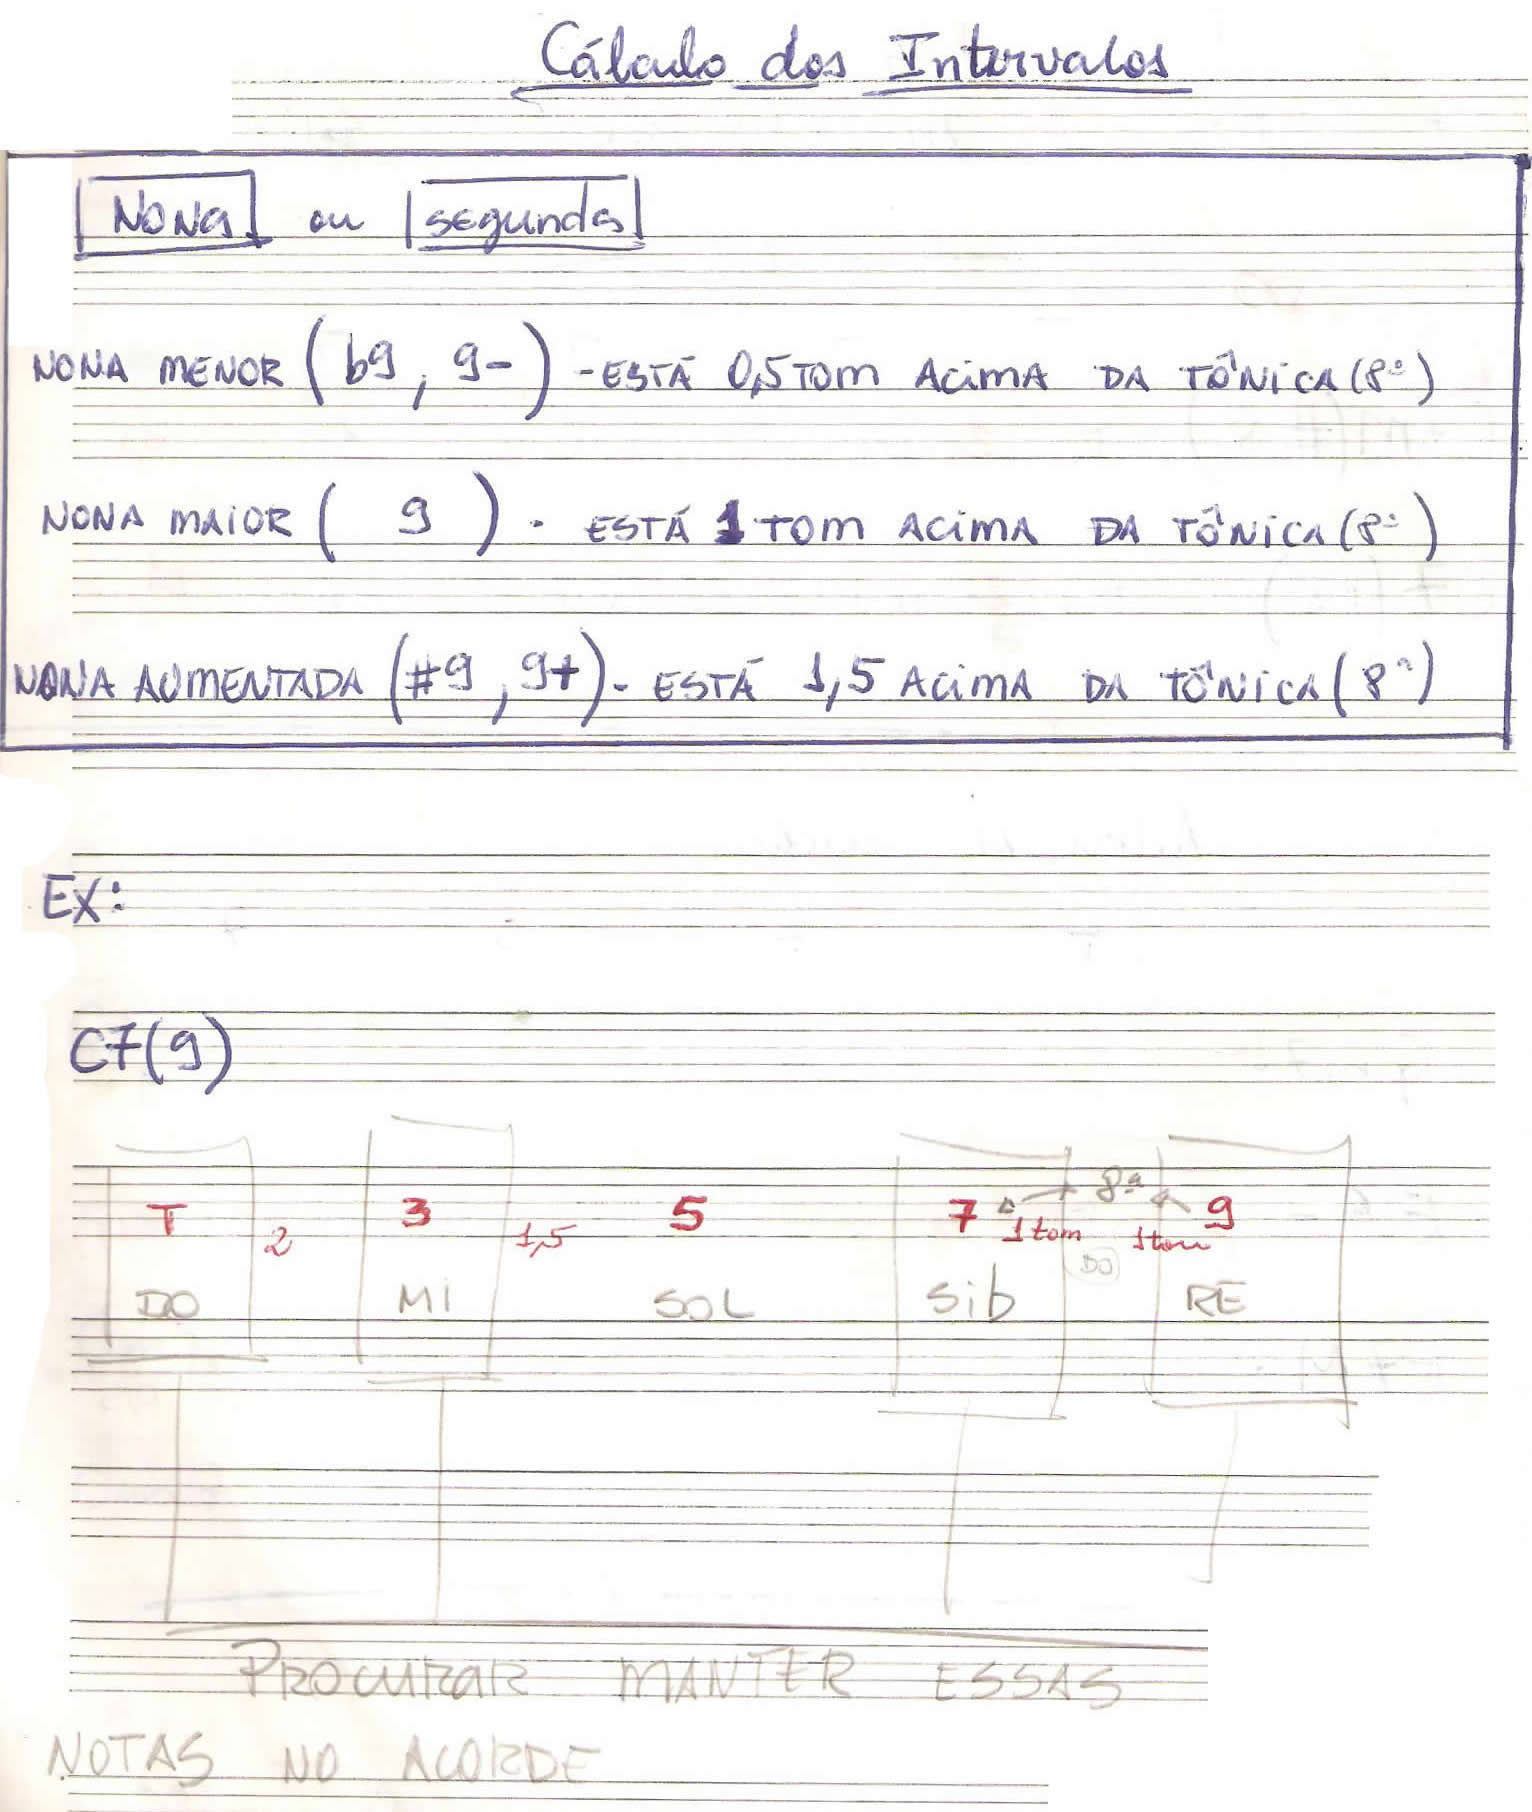 Cálculo dos Intervalos
NONA ou segunda
NONA MENOR (b9, 9-) - ESTÁ 0,5 TOM ACIMA DA TÔNICA (8ª)
NONA MAIOR ( 9 ). ESTÁ 1 TOM ACIMA DA TÔNICA (8ª)
NONA AUMENTADA (#9, 9+)- ESTÁ 1,5 ACIMA DA TÔNICA (8ª)
EX:
C7(9)
T 2 3 1,5 5 7 1 tom 8ª 1 tom 9
DO
DO MI SOL Sib RE
PROCURAR MANTER ESSAS
NOTAS NO ACORDE